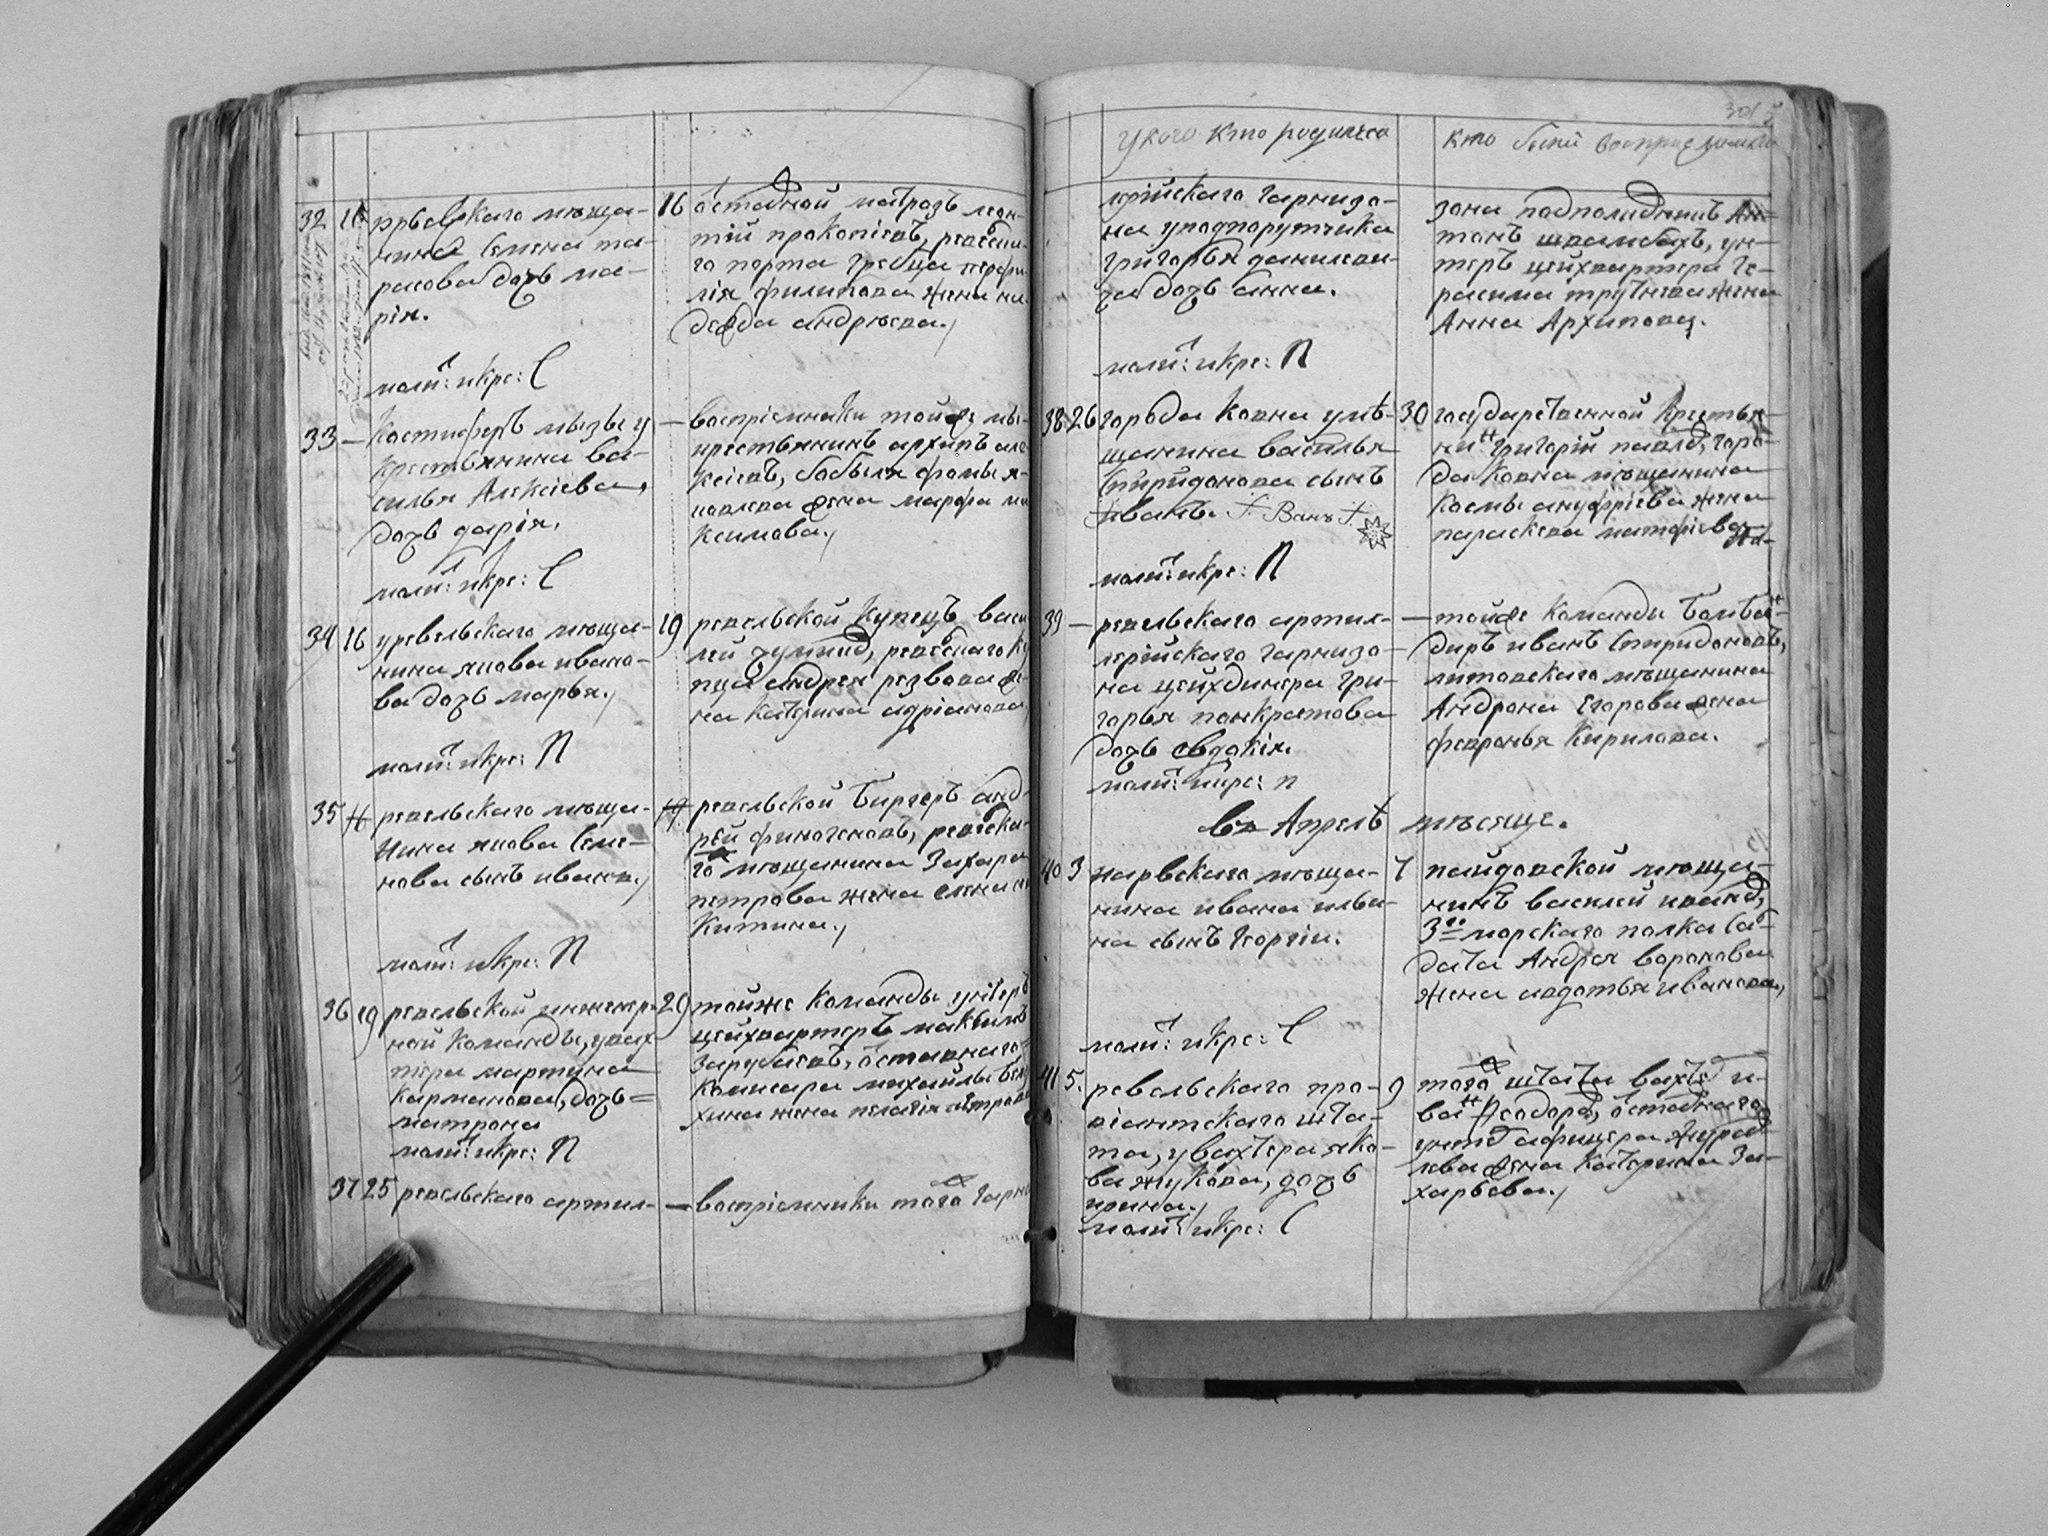 301
у кого кто родился
кто были восприемники
32
16
нина Семена та-
расова дочь ма-
рія.
моли: икре: С
16
оставной матрозъ леон-
тій прокопіевъ, ревелска-
го порта гребца перфи-
лія филипова жена на-
дежда андрѣева.
33 —
мызы у
крестьянина ва-
силья Алексіева
дочь дарія.
моли: икре: С
— воспріемники тойже мы-
крестьянинъ архипъ але-
ксіевъ, бобыля фомы я-
ковлева жена марфа ма
ксимова.
34 16 у ревельскаго мѣща-
нина якова ивано-
ва дочь марья.
моли: икре: П
19 ревельской купецъ васи
лей
ревелскаго ку
пца андрея резвова же-
на катерина адріанова
35
ревельскаго мѣща-
нина якова семе-
нова сынъ иванъ.
моли: икре: П
ревельской биргеръ анд-
рей финогеновъ, ревелска-
го мѣщанина Захара
петрова жена елена ни
китина.
36 19 ревельской инженер-
ной команды, у вах
тера мартына
карманова, дочь
матрона
моли: икре: П
29 тойже команды унтеръ
цейхвартеръ максимъ
зарубаевъ, оставнаго
комисара михайлы
жена пелагія петрова
37 25 ревельскаго артил-
— воспріемники того гарни
лерійскаго гарнизо-
на у подпорутчика
григорья данилеви-
ча дочь анна.
моли: икре: П
зона подполковникъ Ан-
тонъ швамбахъ, ун-
теръ цейхвартера Ге-
расима трутнева жена
Анна Архипова.
38 26 города Ковна у мѣ-
щанина василья
Спиридонова сынъ
иванъ.
моли: икре: П
30 государственной крестья-
нинъ григорій павловъ, горо-
да Ковна мѣщанина
космы ануфріева жена
параскева матфіева
39 — ревельскаго артил-
лерійскаго гарнизо-
на цейхдинера гри-
горья панкратова
дочь евдокія.
моли: икре: п
— тойже команды бомбан-
диръ иванъ Спиридоновъ,
литовскаго мѣщанина
Андрона Егорова жена
февронья Кирилова.
въ Апрелѣ мѣсяцѣ.
40 3 нарвскаго мѣща-
нина ивана ильи-
на сынъ георгій.
моли: икре: С
7 пайдовской мѣща-
нинъ василей ивановъ,
3го морскаго полка сол-
дата Андрея воронова
жена авдотья иванова,
41 5. ревельскаго про-
віантскаго шта-
та, у вахтера яко-
ва жукова, дочь
ирина.
моли: икре: С
9 того штата вахтеръ и-
ванъ Феодоровъ, оставнаго
унтеръ афицера журав-
лева жена катерина За-
харьева.